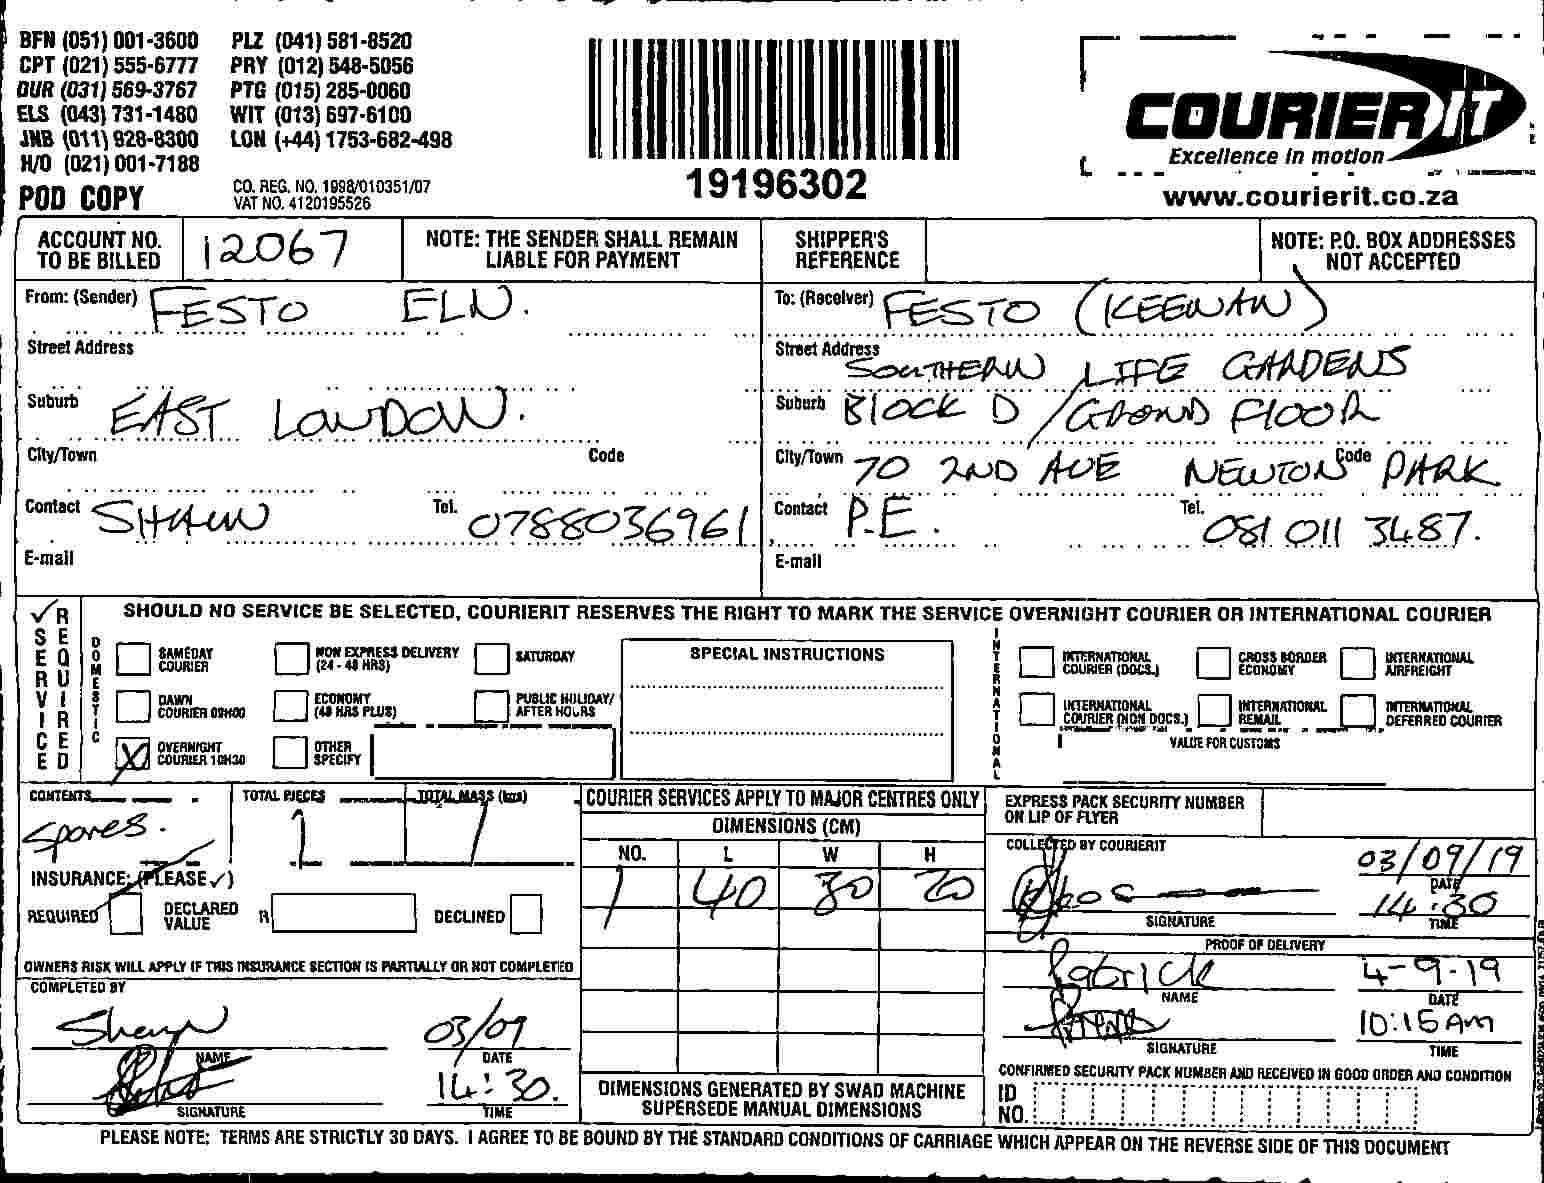 BFN (051) 001-3600 PLZ (041) 581-8520
CPT (021) 555-6777 PRY (012) 548-5056
DUR (031) 569-3767 PTG (015) 285-0060
ELS (043) 731-1480 WIT (013) 697-6100
JNB (011) 928-8300 LON (+44) 1753-682-498
H/O (021) 001-7188
POD COPY
CO. REG. NO. 1998/010351/07
VAT NO. 4120195526
19196302
COURIER IT
Excellence in motion
www.courierit.co.za
ACCOUNT NO. TO BE BILLED 12067
NOTE: THE SENDER SHALL REMAIN LIABLE FOR PAYMENT
SHIPPER'S REFERENCE
NOTE: P.O. BOX ADDRESSES NOT ACCEPTED
From: (Sender) FESTO ELN.
Street Address
Suburb EAST LONDON.
City/Town Code
Contact SHAUN Tel. 0788036961
E-mail
To: (Receiver) FESTO (KEENAN)
Street Address SOUTHERN LIFE GARDENS
Suburb BLOCK D / GROUND FLOOR
City/Town 70 2ND AVE NEWTON Code PARK
Contact P.E. Tel. 081 011 3487.
E-mail
✓ SERVICE REQUIRED
SHOULD NO SERVICE BE SELECTED, COURIERIT RESERVES THE RIGHT TO MARK THE SERVICE OVERNIGHT COURIER OR INTERNATIONAL COURIER
DOMESTIC
SAMEDAY COURIER
NON EXPRESS DELIVERY (24 - 48 HRS)
SATURDAY
DAWN COURIER 09H00
ECONOMY (48 HRS PLUS)
PUBLIC HOLIDAY/ AFTER HOURS
X OVERNIGHT COURIER 10H30
OTHER SPECIFY
SPECIAL INSTRUCTIONS
INTERNATIONAL
INTERNATIONAL COURIER (DOCS.)
CROSS BORDER ECONOMY
INTERNATIONAL AIRFREIGHT
INTERNATIONAL COURIER (NON DOCS.)
INTERNATIONAL REMAIL
INTERNATIONAL DEFERRED COURIER
VALUE FOR CUSTOMS
CONTENTS Spares.
TOTAL PIECES 1
TOTAL MASS (kgs) 1
INSURANCE: (PLEASE ✓)
REQUIRED
DECLARED VALUE R
DECLINED
OWNERS RISK WILL APPLY IF THIS INSURANCE SECTION IS PARTUALLY OR NOT COMPLETED
COMPLETED BY
NAME
03/09 DATE
SIGNATURE
14:30. TIME
COURIER SERVICES APPLY TO MAJOR CENTRES ONLY
DIMENSIONS (CM)
NO. L W H
1 40 30 20
DIMENSIONS GENERATED BY SWAD MACHINE SUPERSEDE MANUAL DIMENSIONS
EXPRESS PACK SECURITY NUMBER ON LIP OF FLYER
COLLECTED BY COURIERIT
03/09/19 DATE
SIGNATURE
14:30 TIME
PROOF OF DELIVERY
Patrick NAME
4-9-19 DATE
SIGNATURE
10:15 AM TIME
CONFIRMED SECURITY PACK NUMBER AND RECEIVED IN GOOD ORDER AND CONDITION
ID NO.
PLEASE NOTE: TERMS ARE STRICTLY 30 DAYS. I AGREE TO BE BOUND BY THE STANDARD CONDITIONS OF CARRIAGE WHICH APPEAR ON THE REVERSE SIDE OF THIS DOCUMENT